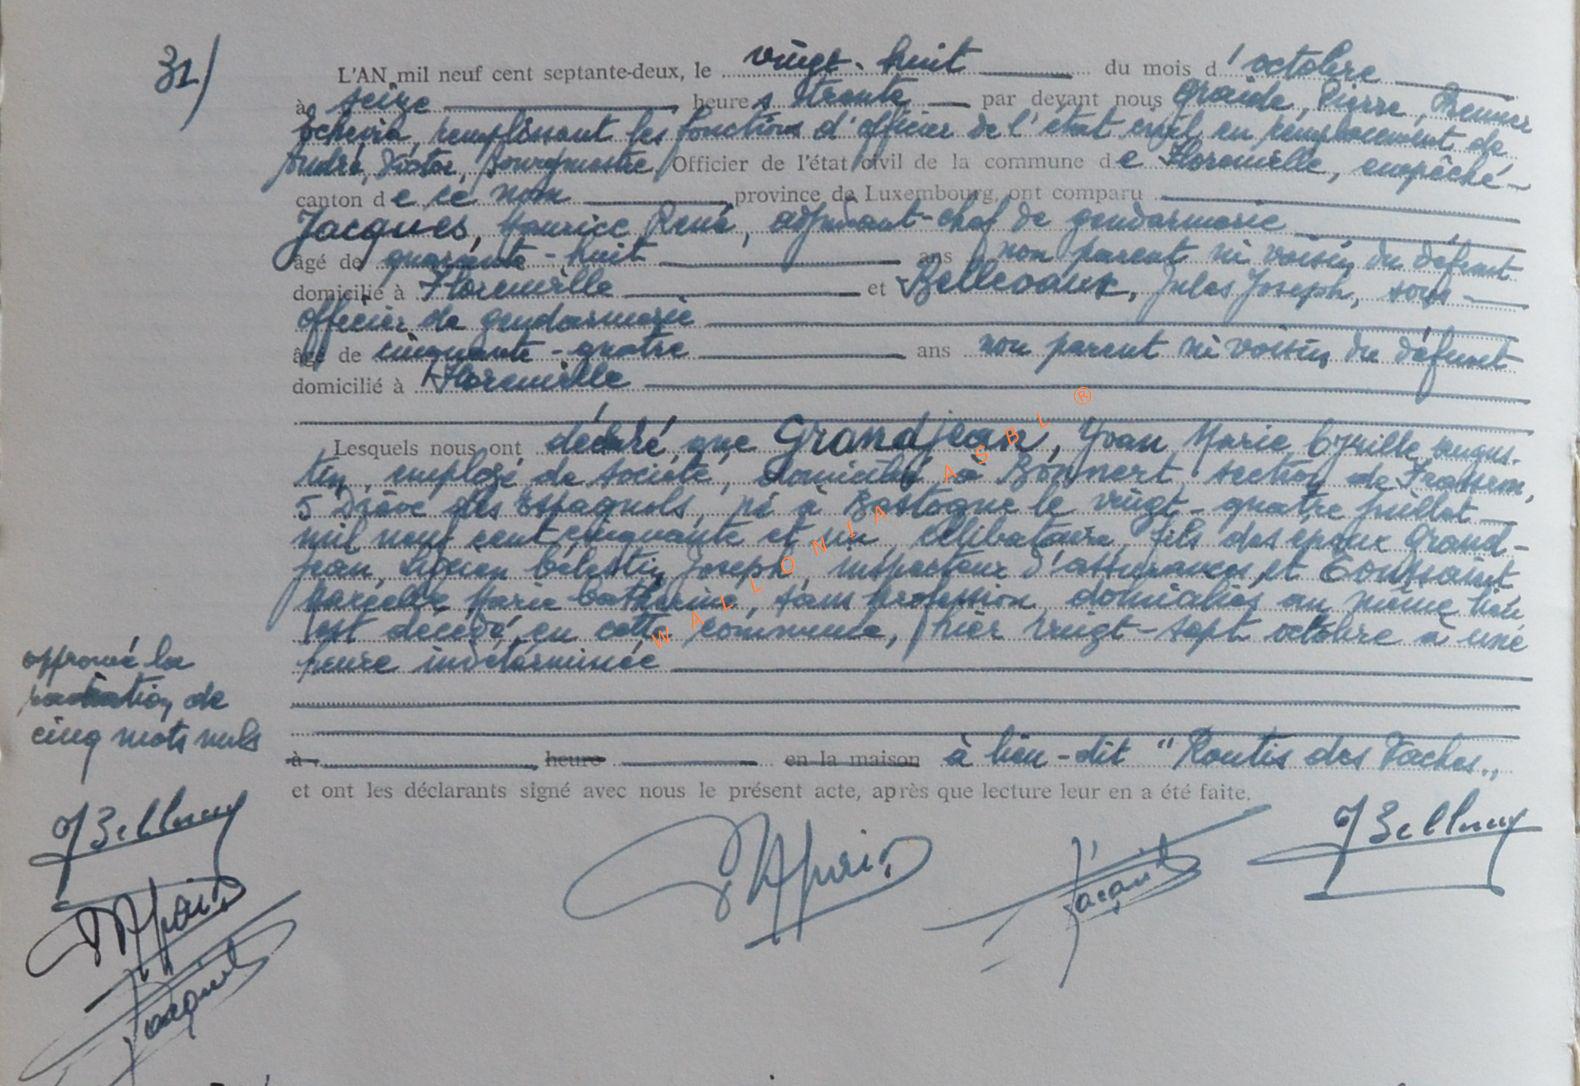 31/
L'AN mil neuf cent septante-deux, le vingt-huit du mois d'octobre
à seize heures trente par devant nous Graide, Pierre, Premier
Echevin, remplissant les fonctions d'officier de l'état civil en remplacement de
André, Victor, Bourgmestre Officier de l'état civil de la commune de Florenville, empêché-
canton de ce nom province de Luxembourg, ont comparu
Jacques, Maurice René, adjudant-chef de gendarmerie
âgé de quarante-huit ans non parent ni voisin du défunt
domicilié à Florenville et Bellevaux, Jules Joseph, sous-
officier de gendarmerie
âgé de cinquante-quatre ans non parent ni voisin du défunt
domicilié à Florenville
Lesquels nous ont déclaré que Grandjean, Yvan Marie Cyrille Augus-
tin, employé de société, domicilié à Bonnert, section de Frassem,
5 Drève des Espagnols, né à Bastogne le vingt-quatre juillet
mil neuf cent cinquante et un, célibataire fils des époux Grand-
jean, Célestin Joseph, inspecteur d'assurances et Toussaint
Marcelle Marie Catherine, sans profession, domiciliés au même lieu
est décédé en cette commune, hier vingt-sept octobre à une
heure indéterminée
à heure en la maison à lieu-dit "Routis des Vaches"
et ont les déclarants signé avec nous le présent acte, après que lecture leur en a été faite.
approuvé la
radiation de
cinq mots nuls
WALLONIA ASBL ®